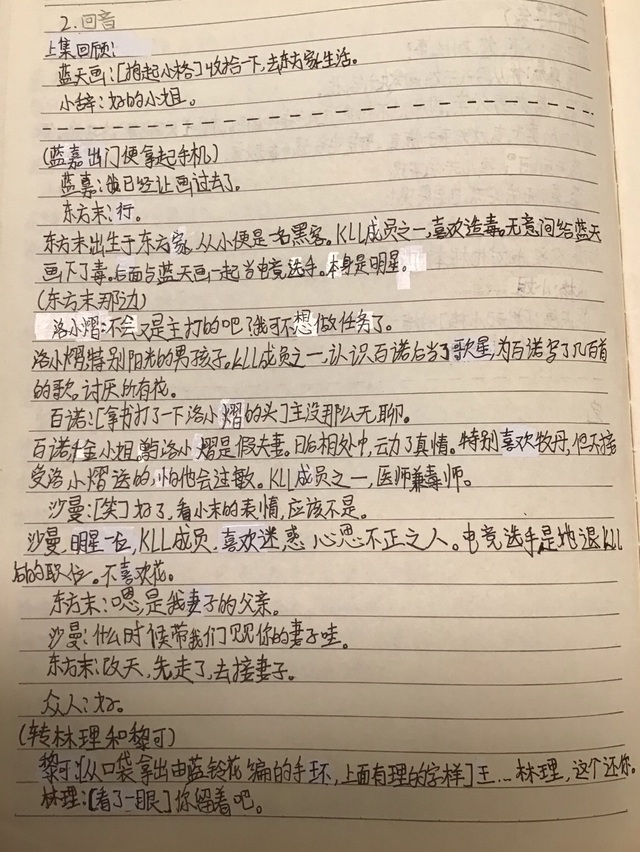 2.回音
上集回顾:
蓝天画:[抱起小格]收拾一下,去东方家生活。
小辞:好的小姐。
(蓝嘉出门便拿起手机)
蓝嘉:俄已经让画过去了。
东方末:行。
东方末出生于东方家,从小便是一名黑客。KLL成员之一,喜欢造毒。无意间给蓝天
画下了毒。后面与蓝天画一起当电竞选手。本身是明星。
(东方末那边)
洛小熠:不会又是主打的吧?我可不想做任务了。
洛小熠,特别阳光的男孩子。KLL成员之一,认识百诺后当了歌星,为百诺写了几百首
的歌。讨厌所有花。
百诺:[拿书打了一下洛小熠的头]主没那么无聊。
百诺,千金小姐,洛小熠是假夫妻。日后相处中,动了真情。特别喜欢牧丹,但不接
受洛小熠送的,怕他会过敏。KLL成员之一,医师兼毒师。
沙曼:[笑]好了,看小末的表情,应该不是。
沙曼,明星一位,KLL成员,喜欢迷惑心思不正之人。电竞选手是她退KLL
的职位。不喜欢花。
东方末:嗯,是我妻子的父亲。
沙曼:什么时候带我们见见你的妻子哇。
东方末:改天,先走了,去接妻子。
众人:好。
(转林理和黎可)
黎可:[从口袋拿出由蓝铃花编的手环,上面有理的字样]王...林理,这个还你。
林理:[看了一眼]你留着吧。